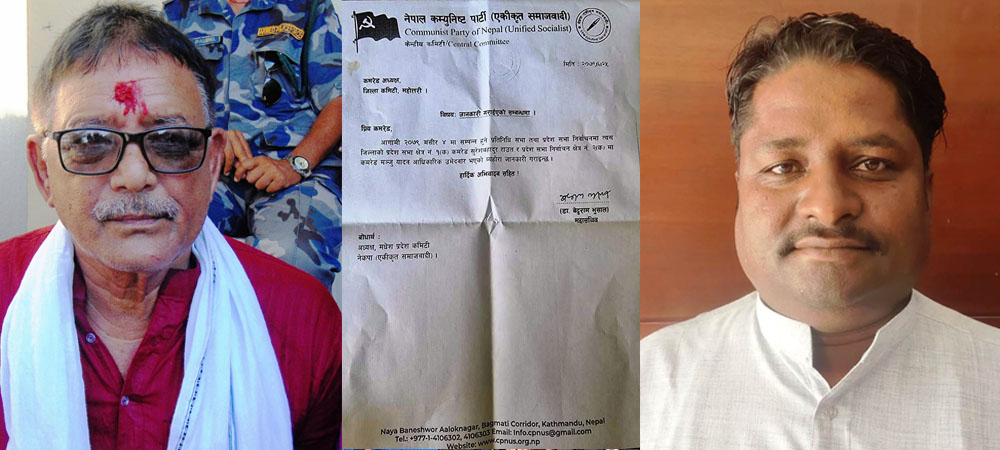 नेपाल कम्युनिष्ट पार्टी (एकीकृत समाजवादी)
Communist Party of Nepal (Unified Socialist)
केन्द्रीय कमिटी/Central Committee
मिति :
कमरेड अध्यक्ष,
जिल्ला कमिटी, महोत्तरी ।
विषयः जानकारी गराईएको सम्बन्धमा ।
प्रिय कमरेड,
आगामी २०७९ मंसीर ४ मा सम्पन्न हुने प्रतिनिधि सभा तथा प्रदेश सभा निर्वाचनमा त्यस
जिल्लाको प्रदेश सभा क्षेत्र नं. १(क) कमरेड सुरेशबहादुर राउत र प्रदेश सभा निर्वाचन क्षेत्र नं. २(क) मा
कमरेड मञ्जु यादव आधिकारिक उमेदवार भएको ब्यहोरा जानकारी गराइन्छ ।
हार्दिक अभिवादन सहित !
(डा. बेदुराम भुसाल)
महासचिव
बोधार्थ :
अध्यक्ष, मधेश प्रदेश कमिटी
नेकपा (एकीकृत समाजवादी) ।
Naya Baneshwor Aaloknagar, Bagmati Corridor, Kathmandu, Nepal
Tel.: +977-1-4106302, 4106303 Email: Info.cpnus@gmail.com
Website: www.cpnus.org.np